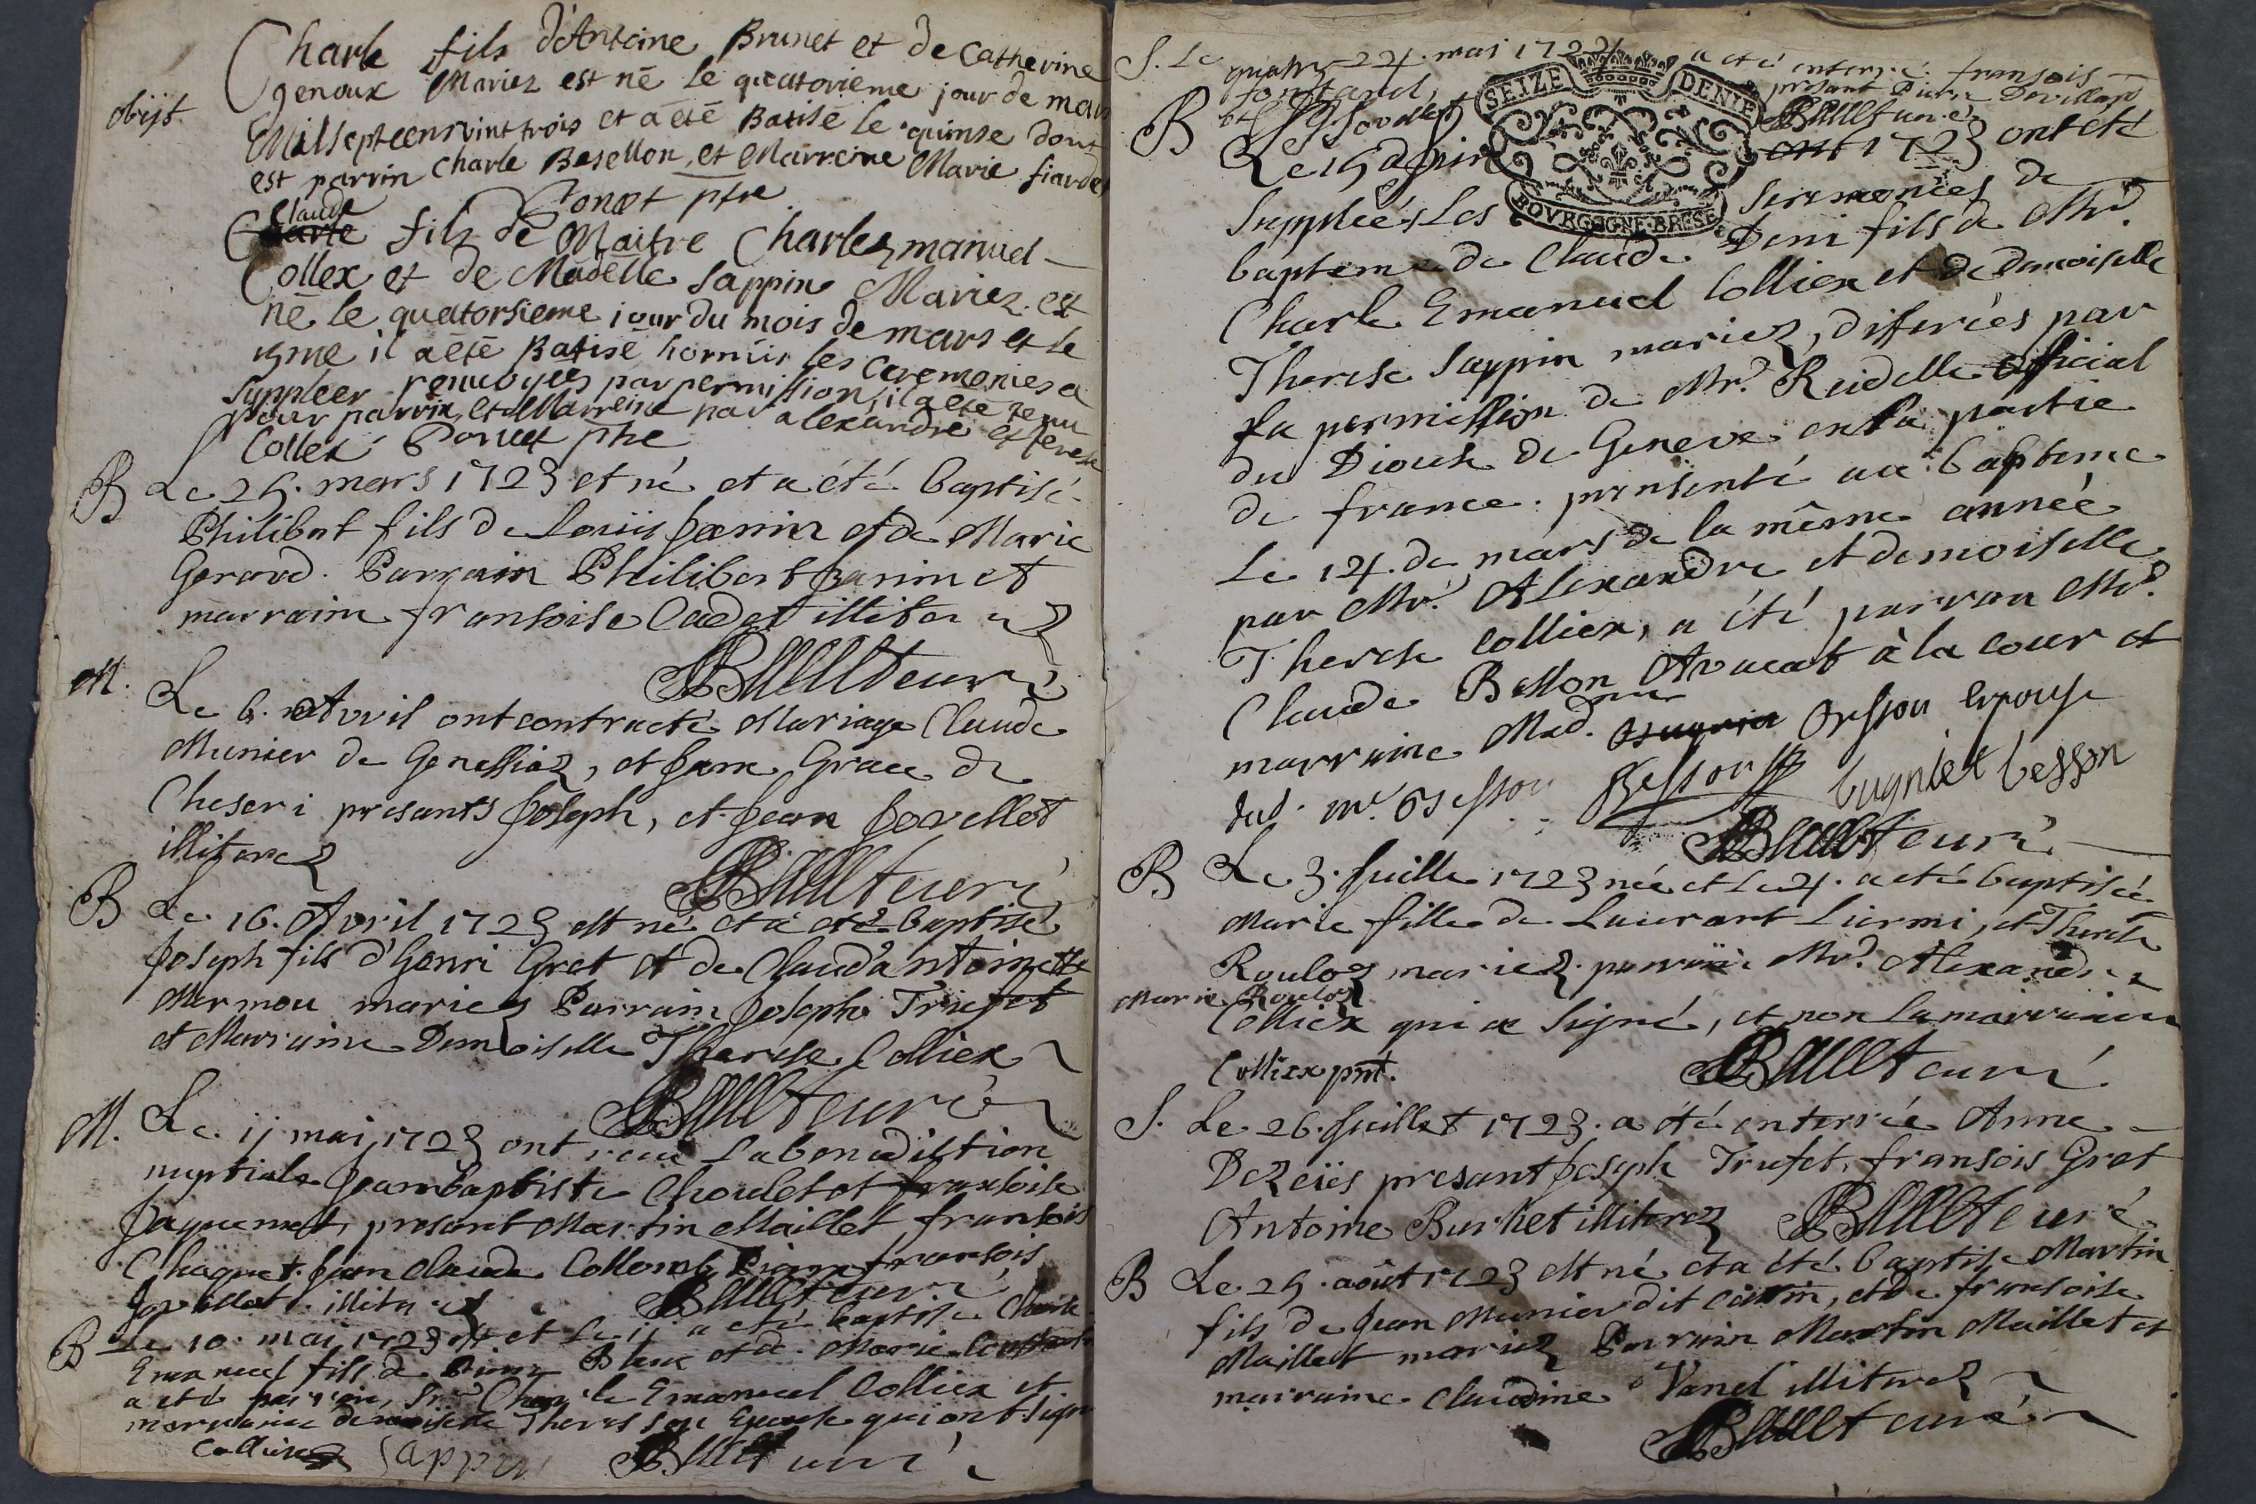 Charle fils d'Antoine Brunet et de Catherine
obijt
genoux Mariez est né le quatorieme jour de mars
Milsept cens vint trois et a été Batisé le quinse dont
est parrin Charle Besellon et Marreine Marie
ptre
Claude
Charle fils de Maitre Charlesmanuel
Collex et de Madelle Sappin Mariez est
né le quatorsieme jour du mois de mars et le
il a été Batisé hormis les Ceremonies a
Suppleer renvoyees par permission, il a été tenu
pour parrin et Marreine par alexandre et terese
Collex ptre
B Le 25. mars 1723 et né et a été baptisé
Philibert fils de Louis Janin et de Marie
Gerard. Parrain Philibert Janin et
marraine fransoise Cadet illiterez
Baillet curé
M. Le 6. Avvril ont contracté Mariage Claude
Munier de Genessiaz, et Jane Grace de
Cheseri presants Joseph, et Jean Jovellet
illiterez
Baillet curé
B Le 16. Avril 1723 est né et a eté baptisé
Joseph fils d'Henri Gret et de Claud'antoinette
Mermou mariez Parrain Joseph Trufet
et Marraine Demoiselle Therese Colliex
Baillet curé
M. Le 11 mai 1723 ont recu la benediction
nuptiale Jeanbaptiste Choulet et fransoise
Jaquemet, presant Martin Maillet fransois
Chaquet Jean Claude Collomb Pierre fransois
Jovellet illiterez
Baillet curé
B Le 10. mai 1723 est et le 11 a eté baptisé Charle
Emanuel fils de Pierre Blanc et de Marie
a eté parrain, Sr. Charle Emanuel Colliex et
marraine demoiselle Therese son Epouse qui ont signé
Colliex Sappin Baillet curé
S. Le 24. mai 1724 a eté enterré fransois
presant Pierre
Baillet curé
SEIZE DENIE
BOVRGOGNE·BRESSE
B Le 15 1723 ont eté
Suppleées Les Seremonies de
bapteme de Claude Deni fils de Mr.
Charle Emanuel Colliex et de Demoiselle
Therese Sappin mariez, diferées par
la permission de Mr. Reidelle official
du Diocese de Geneve en la partie
de france. presenté au bapteme
Le 14. de mars de la même année
par Mr. Alexandre et demoiselle
Therese Colliex, a été parrain Mr.
Claude Besson Avocat à la cour et
marraine Mad. Orsson Epouse
dud. mr. Besson Besson bugniet besson
Baillet curé
B Le 3. Juille 1723 née et Le 4. a eté baptisée
Marie fille de Laurant Liermi, et Therese
Rouloz mariez parrain Mr. Alexandre
Marie Rouloz
Colliex qui a signé, et non la marraine
Colliex pnt.
Baillet curé
S. Le 26. Juillet 1723. a été enterrée Anne
Dezeiies presant Joseph Trufet, fransois Gret
Antoine Burket illiterez Baillet curé
B Le 25. août 1723 est né et a été baptisé Martin
fils de Jean Munier dit Cattin, et de fransoise
Maillet mariez Parrain Martin Maillet et
marraine Claudine Vanel illiterez
Baillet curé